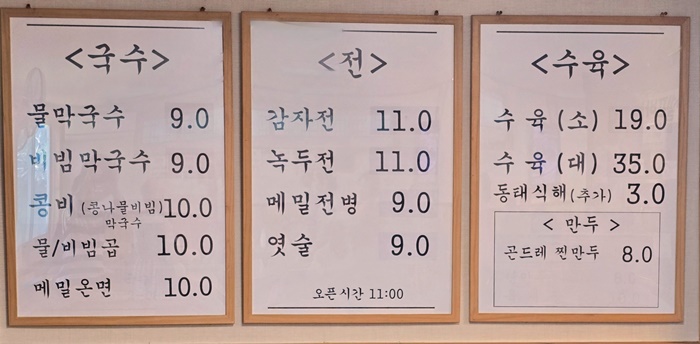 <국수>
물막국수 9.0
비빔막국수 9.0
콩비 (콩나물비빔) 10.0
막국수
물/비빔곱 10.0
메밀온면 10.0
<전>
감자전 11.0
녹두전 11.0
메밀전병 9.0
엿술 9.0
오픈시간 11:00
<수육>
수육 (소) 19.0
수육 (대) 35.0
동태식해 (추가) 3.0
< 만두 >
곤드레 찐만두 8.0